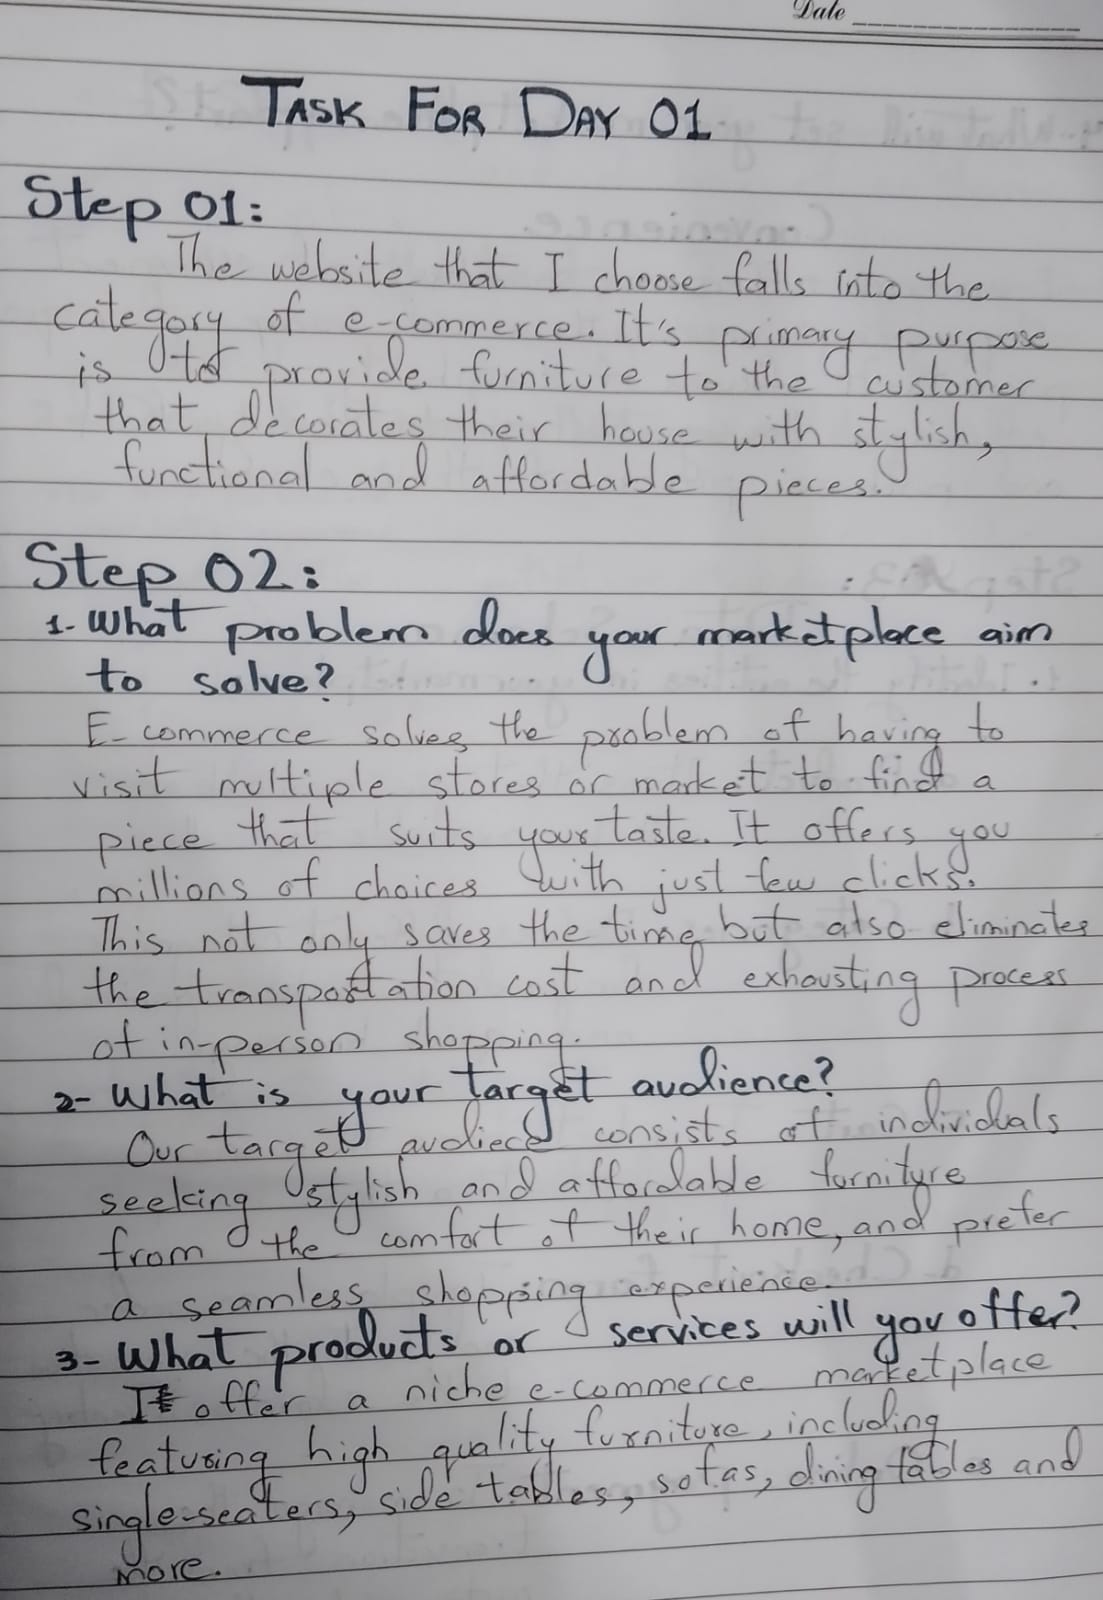 Date
TASK FOR DAY 01
Step 01:
The website that I choose falls into the
category of e-commerce. It's primary purpose
is to provide furniture to the customer
that decorates their house with stylish,
functional and affordable pieces.
Step 02:
1- What problem does your marketplace aim
to solve?
E-commerce solves the problem of having to
visit multiple stores or market to find a
piece that suits your taste. It offers you
millions of choices with just few clicks.
This not only saves the time but also eliminates
the transportation cost and exhausting process
of in-person shopping.
2- What is your target audience?
Our target audiece consists of individuals
seeking stylish and affordable furniture
from the comfort of their home, and prefer
a seamless shopping experience.
3- What products or services will you offer?
It offer a niche e-commerce marketplace
featuring high quality furniture, including
single-seaters, side tables, sofas, dining tables and
more.